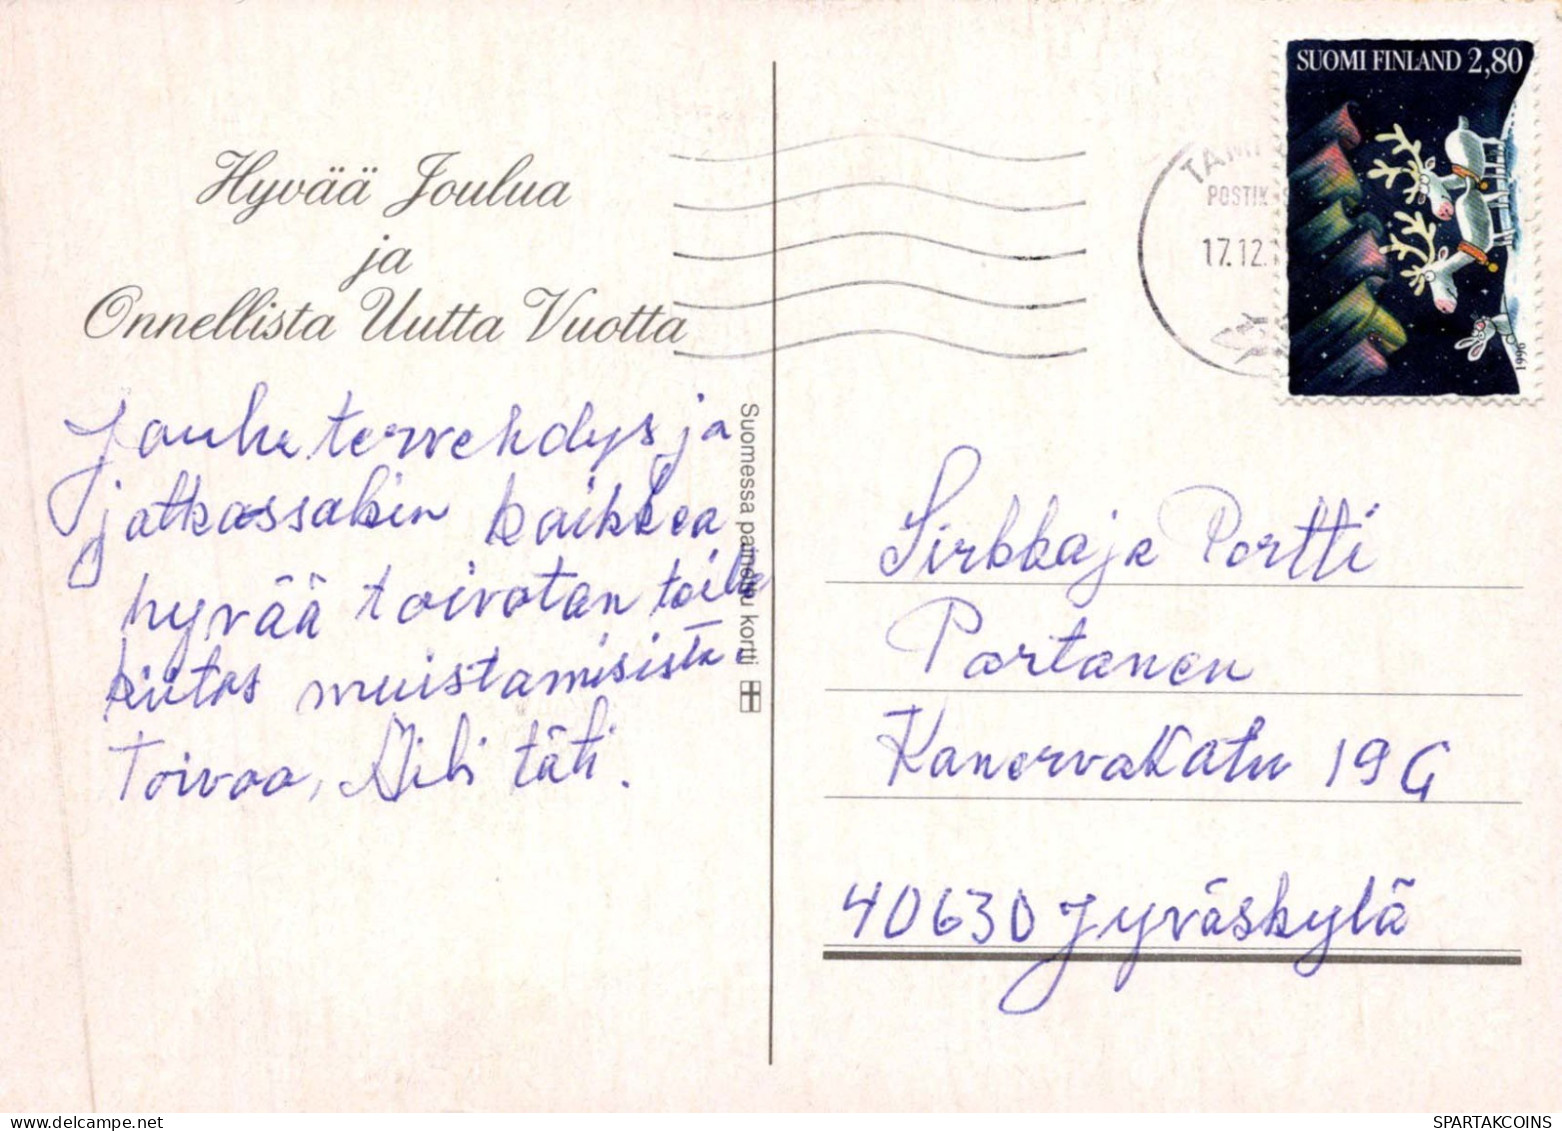 Hyvää Joulua
ja
Onnellista Uutta Vuotta
Jouhu tervehdys ja
jatkossakin kaikkea
hyvää toivotan teille
kiitos muistamisista.
Toivoo, Aili täti.
Suomessa painettu kortti
POSTIK
17.12.
SUOMI FINLAND 2,80
1996
Sirkka ja Pertti
Partanen
Kanervakatu 19 G
40630 Jyväskylä
SPARTAKCOINS